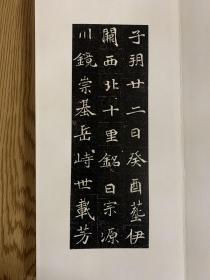 子朔廿二日癸酉塟伊
闕西北十里銘曰宗源
川鏡崇基岳峙世載芳